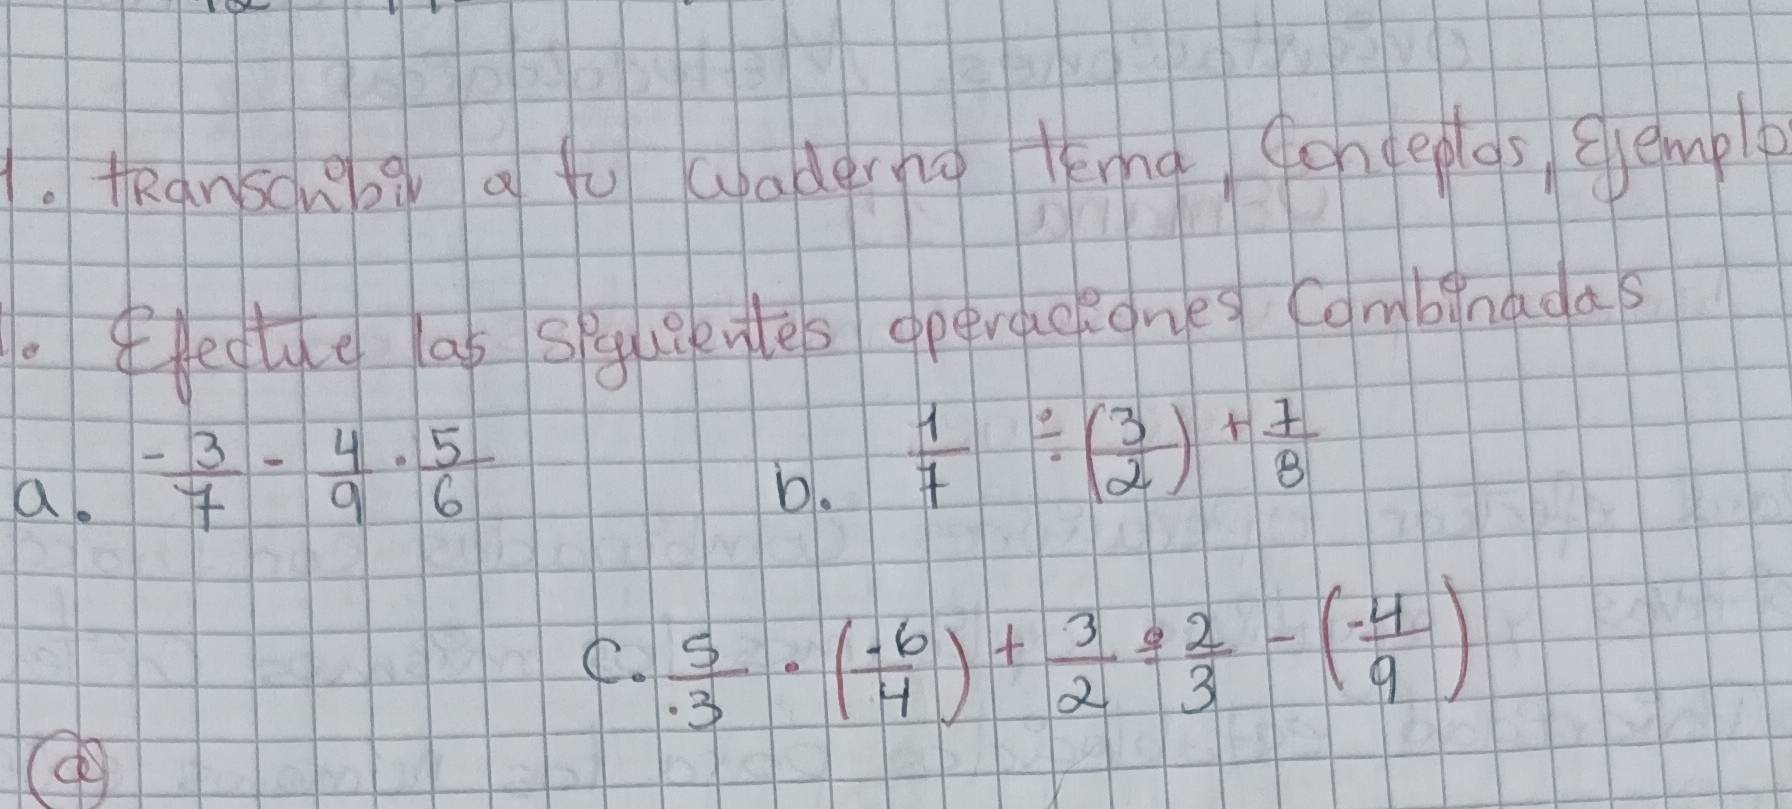 1. transcribir a tu cuaderno tema, Conceptos, Ejemplo
1. Efectue las siguientes operaciones Combinadas
a. -3/7 - 4/9 · 5/6 b. 1/7 ÷ (3/2) + 7/8
c. 5/3 · (-6/4) + 3/2 ÷ 2/3 - (-4/9)
a